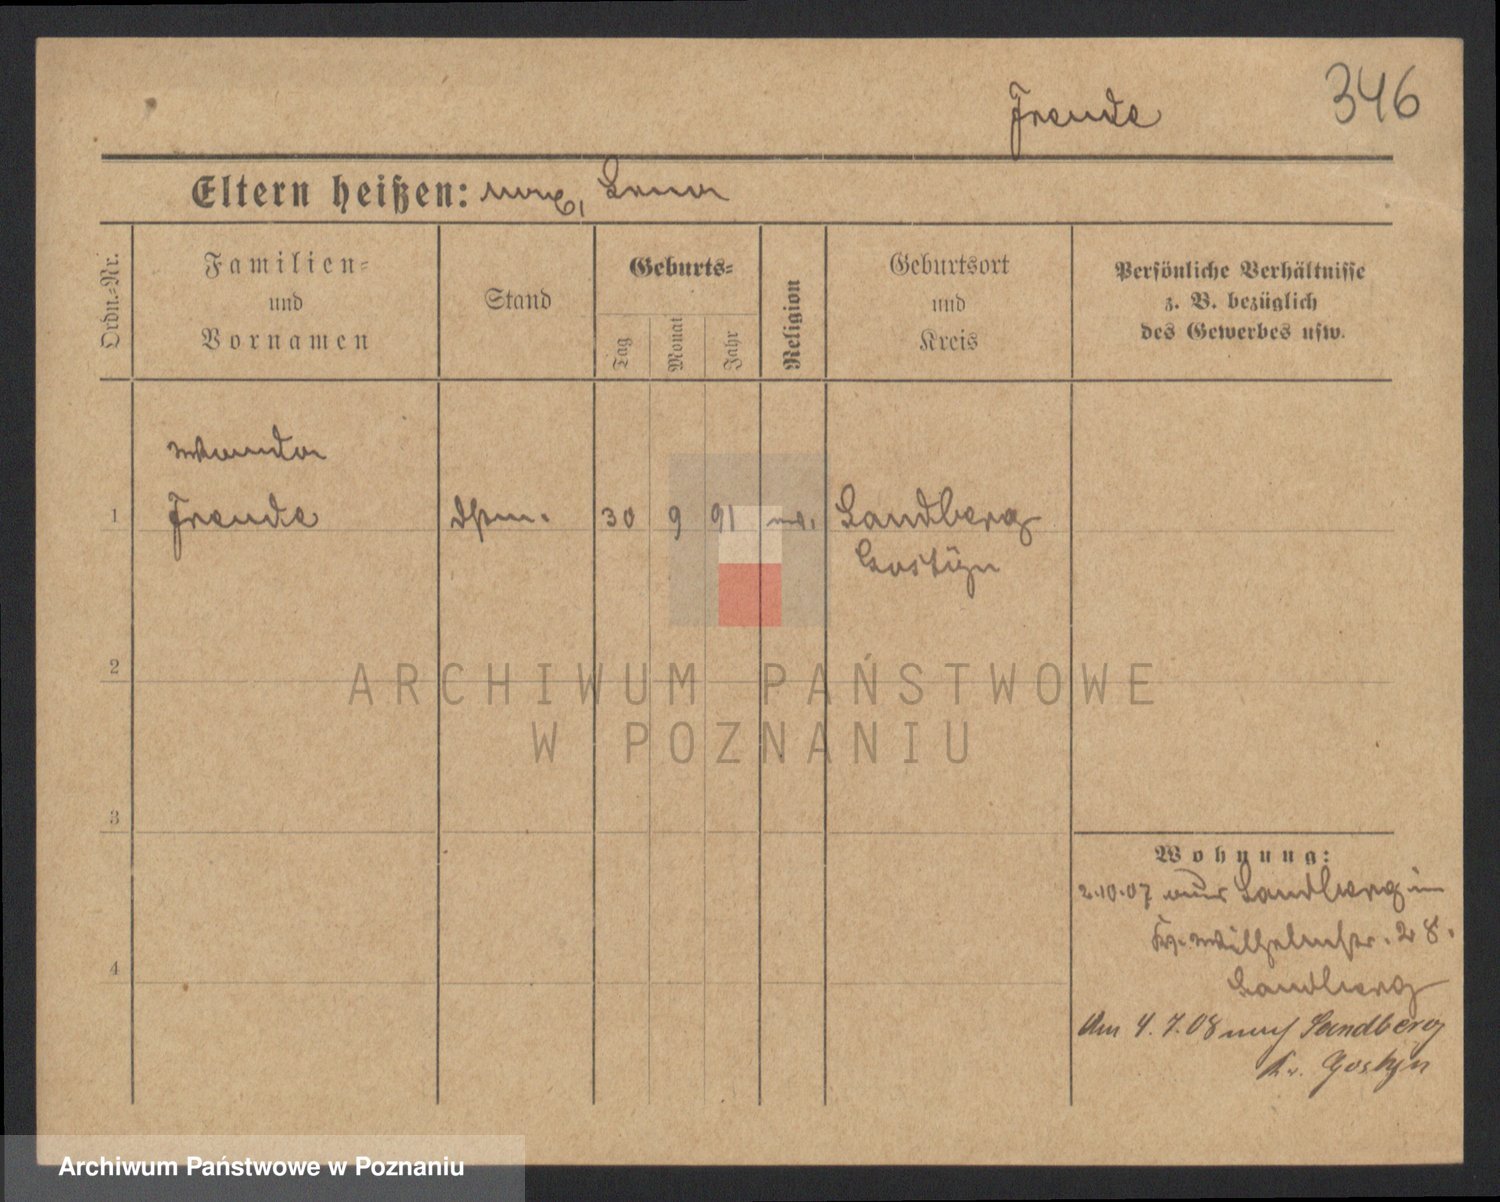 346
Frende
Eltern heißen: Max,
Ordn.-Nr.
Familien-
und
Vornamen
Stand
Geburts-
Tag
Monat
Jahr
Religion
Geburtsort
und
Kreis
Persönliche Verhältnisse
z. B. bezüglich
des Gewerbes usw.
Wanda
1 Frende 30 9 91 Sandberg
Gostyn
2
3
4
Wohnung:
2.10.07 aus Sandberg in
Wilhelmstr. 28.
Sandberg
Am 4.7.08 nach Sandberg
Kr. Gostyn
ARCHIWUM PAŃSTWOWE
W POZNANIU
Archiwum Państwowe w Poznaniu